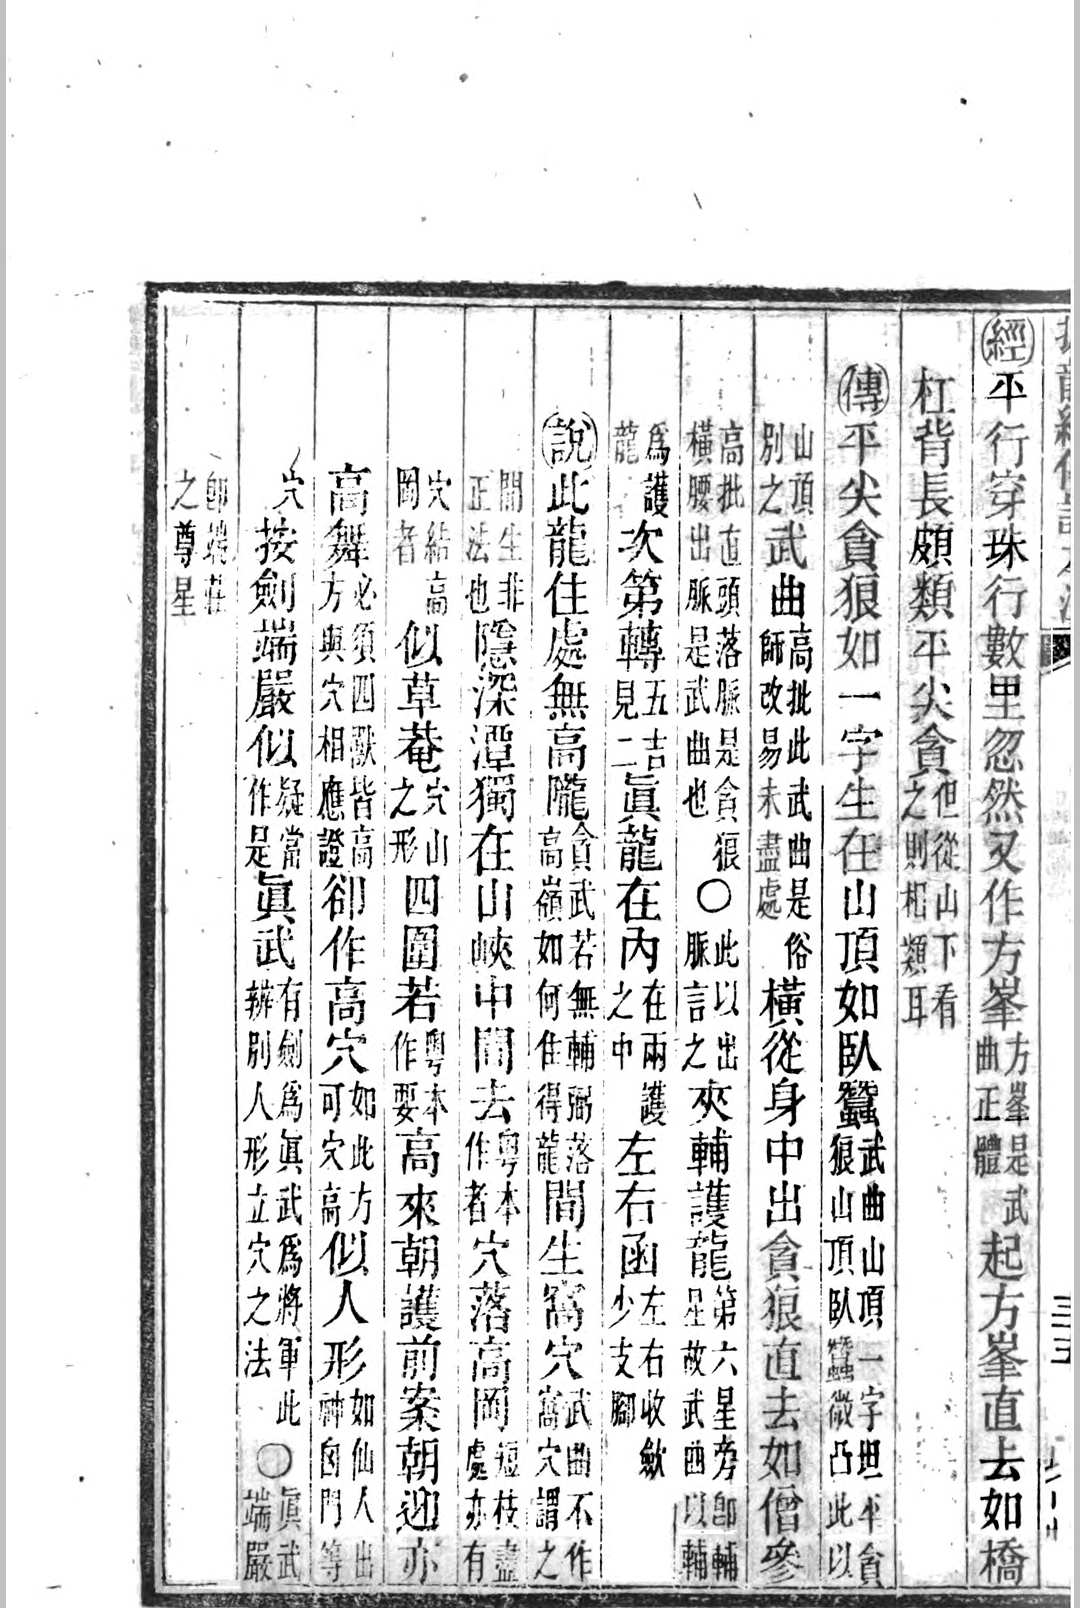 經平行穿珠行數里忽然又作方峯方峯是武曲正體起方峯直去如橋
杠背長頗類平尖貪但從山下看之則相類耳
傳平尖貪狼如一字生在山頂如臥蠶武曲山頂一字坦平貪狼山頂臥蠶微凸此以
山頂別之武曲高批此武曲是俗師改易未盡處橫從身中出貪狼直去如僧參
高批直頭落脈是貪狼橫腰出脈是武曲也○此以出脈言之夾輔護龍第六星旁卽輔星故武曲以輔
爲護龍次第轉五吉見二眞龍在內在兩護之中左右函左右收斂少支腳
說此龍住處無高隴貪武若無輔弼落高嶺如何住得龍間生窩穴武曲不作窩穴謂之
間生非正法也隱深潭獨在山峽中間去粵本作者穴落高岡短枝盡處亦有
穴結高岡者似草菴穴山之形四圍若粵本作要高來朝護前案朝迎亦
高舞必須四獸皆高方與穴相應證卻作高穴如此方可穴高似人形如仙人出神囟門等
穴按劍端嚴似疑當作是眞武有劍爲眞武爲將軍此辨別人形立穴之法○眞武端嚴
卽端莊之尊星